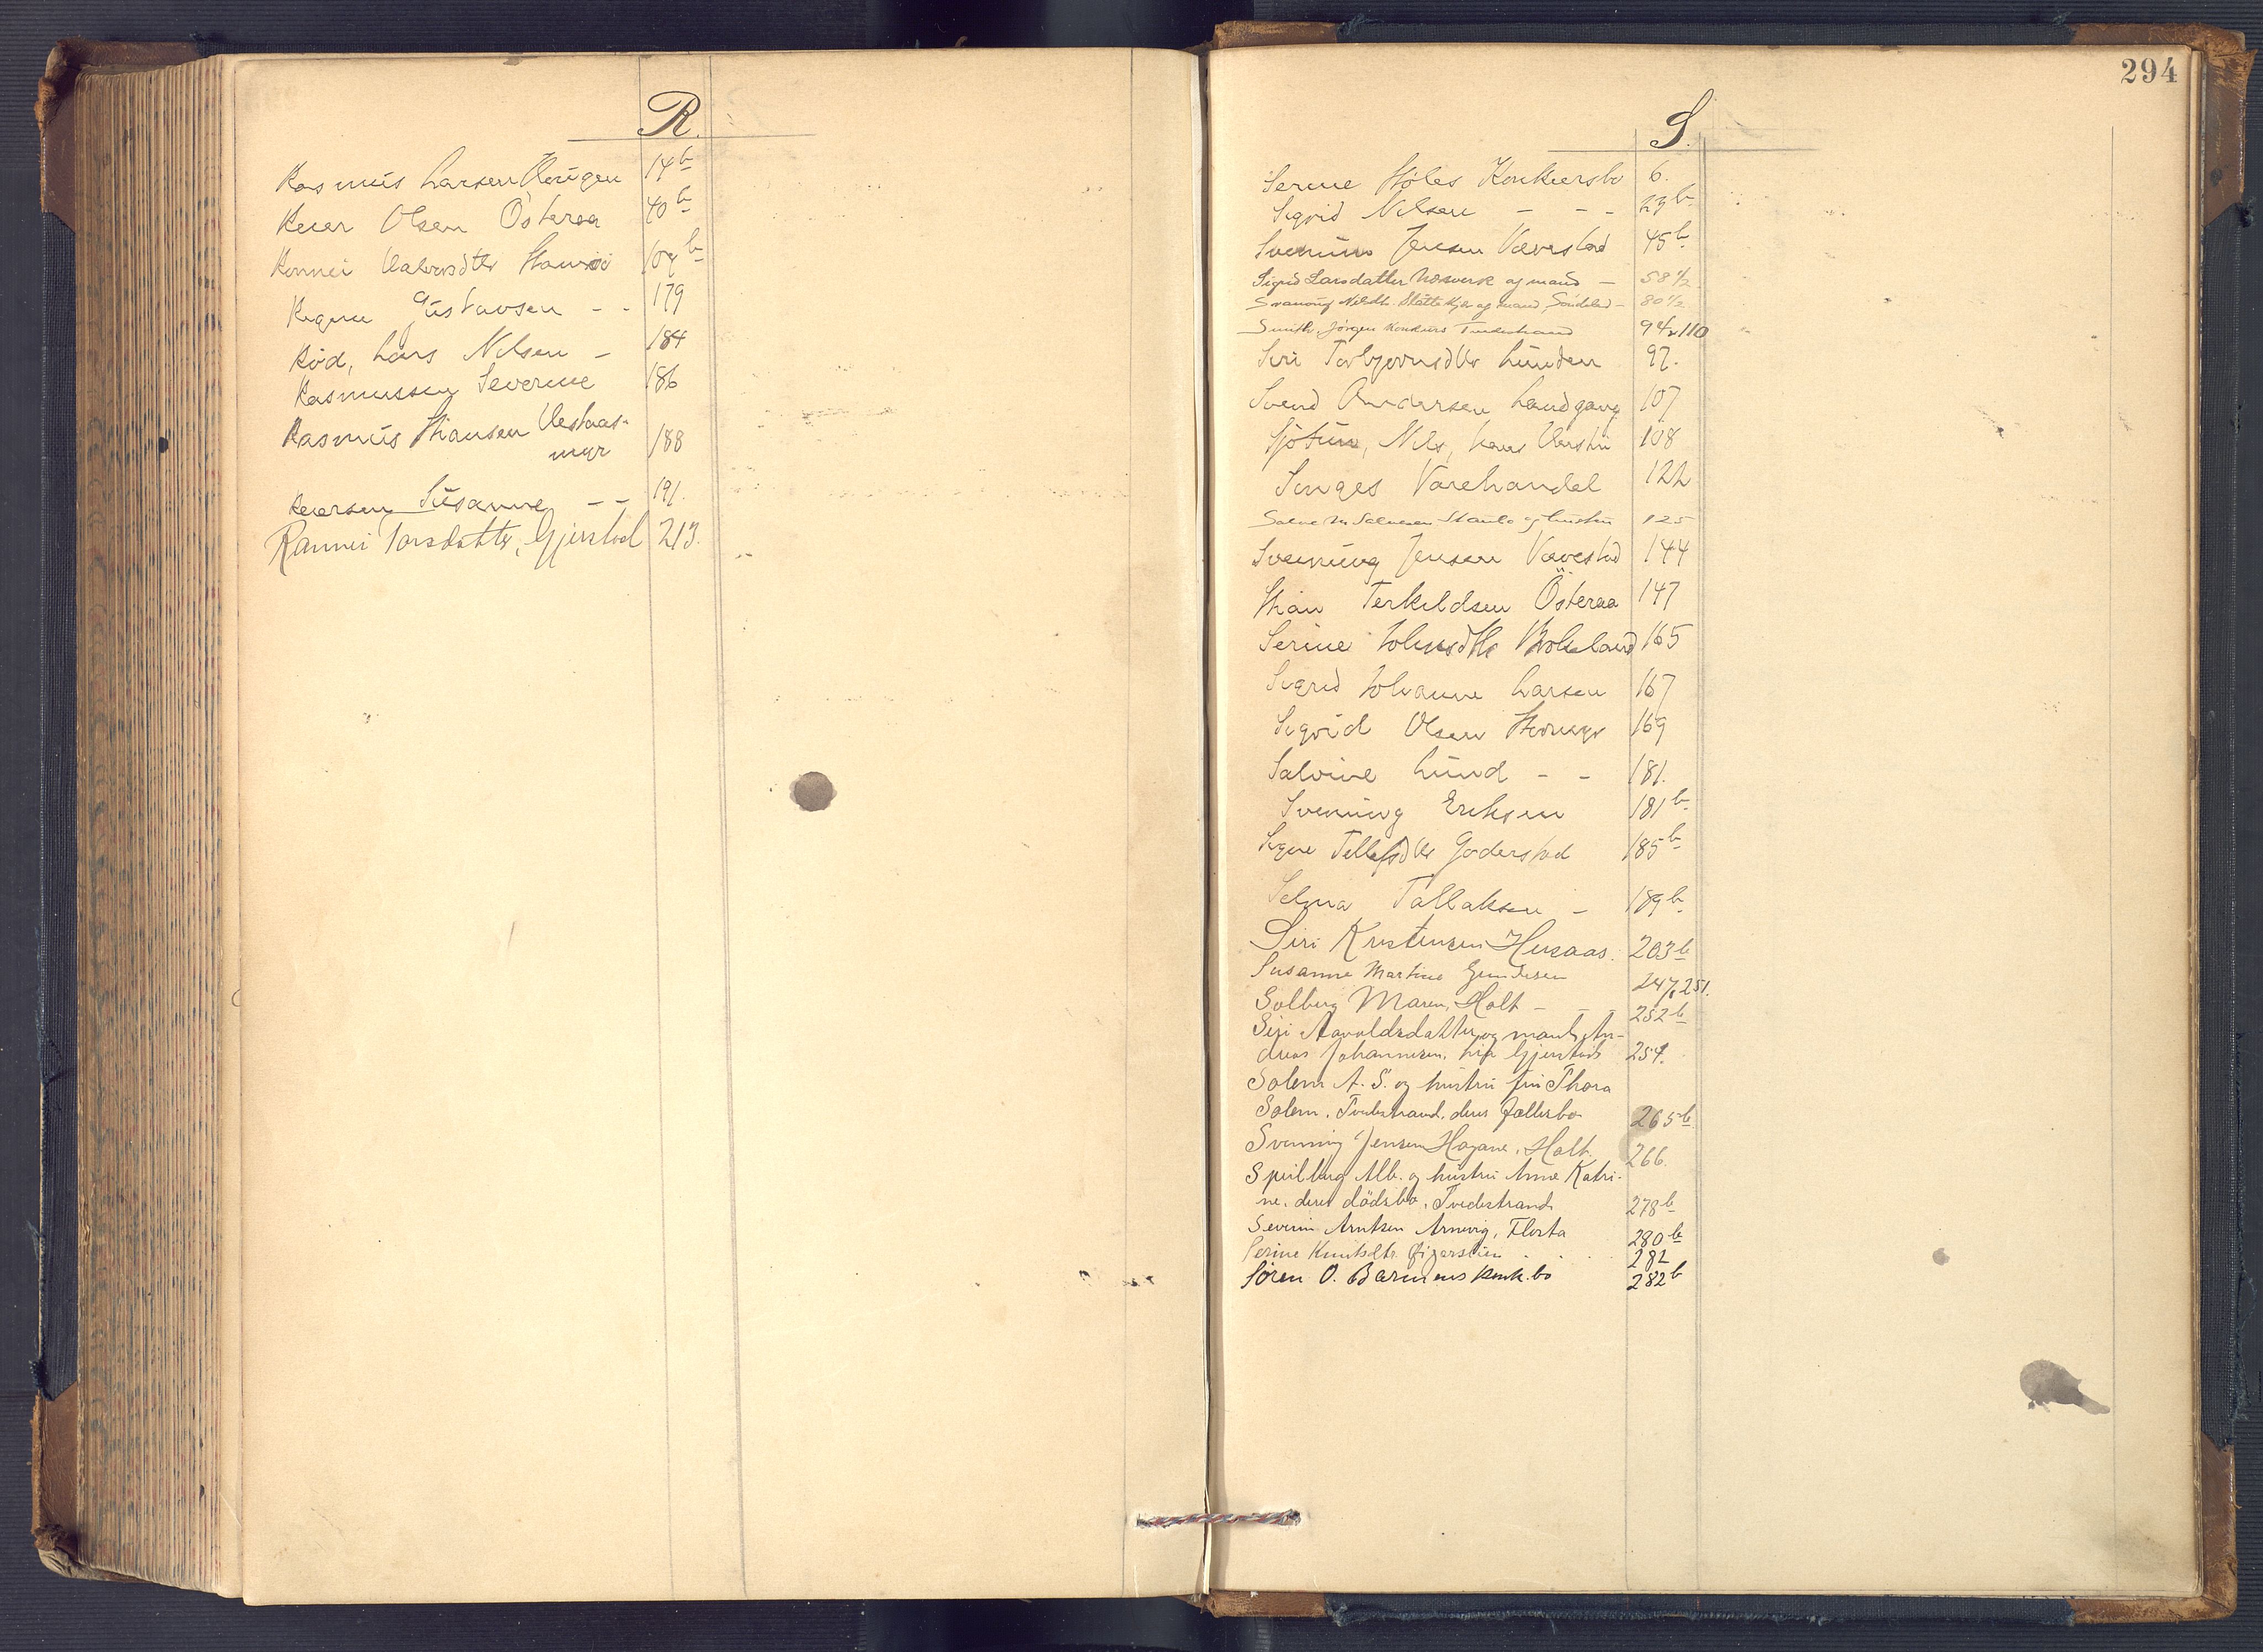 R.
Rasmus Larsen Haugen 14b
Reier Olsen Österaa 40b
Ronnei Halvorsdtr 109b
Regine Gustavsen - - 179
Röd, Lars Nilsen - 184
Rasmussen Severine 186
Rasmus Hansen Vestaas-
myr 188
Reiersen Susanne - - 191.
Rannei Larsdatter, Gjerstad 213.
294
S.
Serine Höles Konkursbo 6.
Sigvid Nilsen - - - 23b
Svenum Jensen Vævestad 45b
Sigrid Larsdatter og mand - 58 1/2
Nilsdtr. og mand, Söndeled - 80 1/2
Smith, Jörgen Konkurs Tvedestrand 94, 110
Siri Torbjornsdtr Lunden 97.
Svend Andersen Landgang 107
Sjötun, Nils, hans 108
Singes Varehandel 122
Salve M Salvesen Staulo og hustru 125
Svenung Jensen Vævestad 144
Stian Terkildsen Österaa 147
Serine Johnsdtr 165
Sigrid Johanne Larsen 167
Sigvid Olsen 169
Salvine Lund - - 181.
Svenung Eriksen 181b
Signe Tellefsdtr Goderstad 185b
Selma Tallaksen - 189b
Siri Kristensen Husaas. 203b
Susanne Martine Gundersen 247, 251.
Solberg Maren, Holt - - - 252b
Siri Aavoldsdatter og mand, An-
dreas Johannesen, Gjerstad 254.
Solem A. S. og hustru fru Thora
Solem, Tvedestrand, deres fællesbo 265b
Svenning Jensen Hagane, Holt. 266.
Speilberg Alb. og hustru Anne Katri-
ne, deres dödsbo, Tvedestrand 278b
Severin Arntsen Arnevig, Flosta 280b
Serine Knutsdtr. . . . 282
Sören O. konk.bo 282b